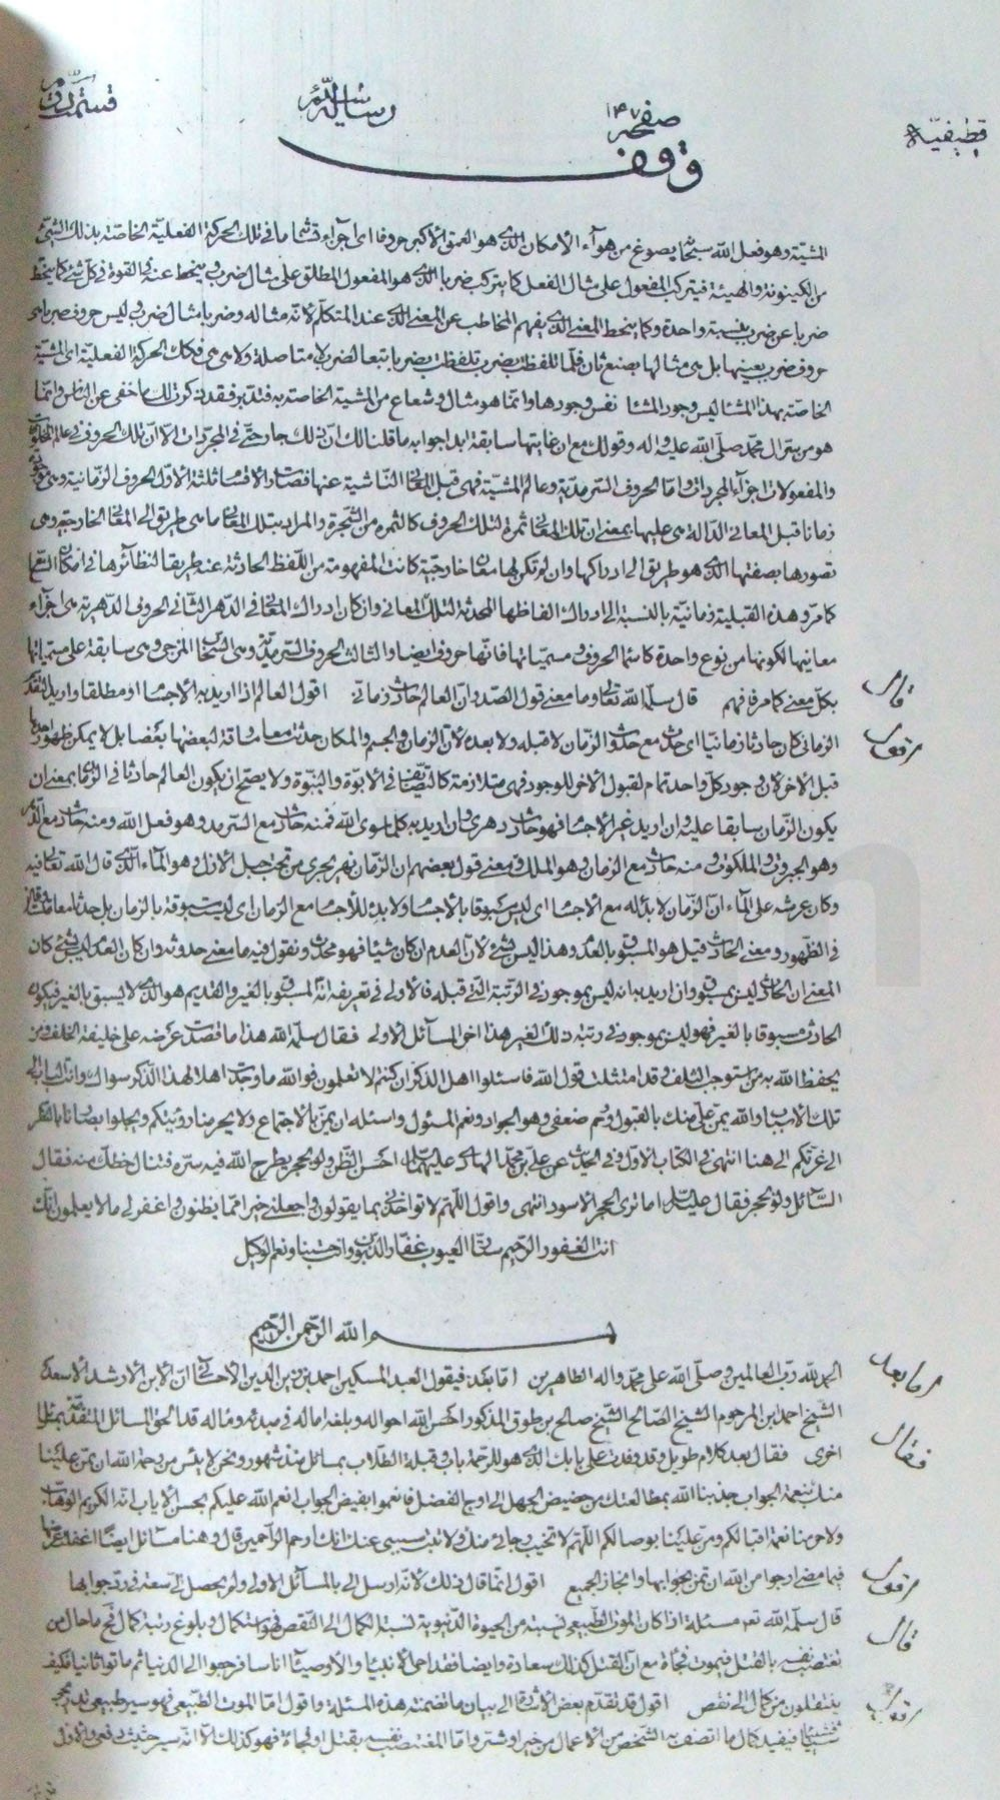 قطیفیّة
صفحه ۱۴۷
رسالة
قسمت
وقف
المشيّة وهو فعل الله سبحانه يصوغ من هوآء الأمكان الذى هو العمق الأكبر حروفا اى اجزاء وتشأما فى تلك الحركة الفعليّة الخاصّة بذلك الشئ
من الكينونة والهيئة فيتركب المفعول على مثال الفعل كما يتركب ضربا الذى هو المفعول المطلق على مثال ضرب وينحط عنه فى القوة فى كل شئ كما ينحط
ضربا عن ضرب نسبة واحدة وكما ينحط المعنى الذى يفهم المخاطب عن المعنى الذى عند المتكلم لانّه مثاله وضربا مثال ضرب وليس حروف ضربا هى
حروف ضرب بعينها بل هى مثالها بصنع ثان فلمّا تلفظت بضرب تلفظت بضربا تبعا لضرب لا متاصلة ولا هى هى فكك الحركة الفعليّة اى المشيّة
الخاصّة بهذا المشا ليس وجود المشا نفس وجودها وانّما هو مثال وشعاع من المشيّة الخاصّة به فتدبّر فقد ذكرت لك ما خفى عن الناس وانّما
هو من سرّ ال محمّد صلّى الله عليه واله وقولك مع ان غايتها سابقة ابدا جوابه ما قلنا لك انّ ذلك جار حتّى فى المجرّدات الّا انّ تلك الحروف فى عالم
والمفعولات اجزآء المجردات وامّا الحروف السّرمديّة وعالم المشيّة فهى قبل المعانى النّاشية عنها فصار الاقسام ثلثة الأوّل الحروف الزّمانية وهى
زمانا قبل المعانى الدّالة هى عليها بمعنى ان تلك المعانى ثمرة لتلك الحروف كالثمرة من الشّجرة والمراد بتلك المعانى ما هى طريق الى المعانى الخارجيّة وهى
تصورها بصفتها الذى هو طريق الى ادراكها وان لم تكن لها معان خارجيّة كانت المفهومة من اللّفظ الحادثة عنه طريقا لنظائرها فى امكان
كما مر وهذه القبليّة زمانيّة بالنسبة الى ادراك الفاظها المحدثة لتلك المعانى وان كان ادراك المعانى فى الدّهر الثانى الحروف الدّهريّة هى اجزآء
معانيها لكونها من نوع واحدة كاسماء الحروف ومسمّياتها فانّها حروف ايضا والثالث الحروف السّرمديّة وهى السّحاب المزجى وهى سابقة على مسمّياتها
قال
بكلّ معنى كما مر فافهم قال سلّمه الله تعالى وما معنى قول الصّدر انّ العالم حادث زمانى اقول العالم اذا اريد به الأجسام او مطلقا واريد
اقول
الزمانى كان حادثا زمانيّا اى حدث مع حدوث الزمان لا قبله ولا بعده لأنّ الزمان والجسم والمكان حدثت معا مساوقة لبعضها بعضا بل لا يمكن ظهور احدها
قبل الآخر لأن وجود كلّ واحد تمام لقبول الآخر للوجود فهى متلازمة كالتّضايف فى الأبوّة والبنوّة ولا يصحّ ان يكون العالم حادثا فى الزمان بمعنى ان
يكون الزّمان سابقا عليه وان اريد غير الأجسام فهو حادث دهرى وان اريد به كل ما سوى الله فمنه حادث مع السّرمد وهو فعل الله ومنه حادث مع الدّهر
وهو الجبروت والملكوت ومنه حادث مع الزمان وهو الملك ومعنى قول بعضهم ان الزّمان نهر يجرى من تحت جبل الأزل وهو الماء الّذى قال الله تعالى فيه
وكان عرشه على المآء انّ الزّمان لا بدء له مع الأجسام اى ليس مسبوقا بالأجسام ولا بدء للأجسام مع الزمان اى ليست مسبوقة بالزمان بل حدثا معا
فى الظّهور ومعنى الحادث قيل هو المسبوق بالعدم وهذا ليس بشئ لأنّ العدم ان كان شيئا فهو محدث ونقول فيه ما معنى حدوثه وان كان العدم ليس بشئ كان
المعنى ان الحادث ليس بمسبوق وان اريد به انه ليس بموجود فى الرّتبة الّتى قبله فالأولى فى تعريفه انّه المسبوق بالغير والقديم هو الذى لا يسبق بالغير فيكون
الحادث مسبوقا بالغير فهو ليس بموجود فى رتبة ذلك الغير هذا اخر المسآئل الأولى فقال سلّمه الله هذا ما قصدت عرضه على خليفة الخلف ومن
يحفظ الله به من استوجب التلف وقد امتثلت قول الله فاسئلوا اهل الذكر ان كنتم لا تعلمون فو الله ما وجدت اهلا لهذا الذكر سواك وانت
تلك الأسباب والله يمن علىّ منك بالقبول ورحم ضعفى وهو الجواد ونعم المسئول واسئله ان يمنّ بالاجتماع ولا يحرمنا رؤيتكم ويجلوا بصائنا بالنّظر
الى غرّتكم الى هنا انتهى فى الكتاب الأوّل وفى الحديث عن على بن محمّد الهادى عليهما السلام احسن الظّن ولو بحجر يطرح الله فيه سرّه فتنال حظك منه فقال
السّائل ولو بحجر فقال عليه السلام اما ترى الحجر الأسود انتهى واقول اللّهم لا تؤاخذنى بما يقولون واجعلنى خيرا ممّا يظنّون واغفر لى ما لا يعلمون انّك
انت الغفور الرّحيم ستّار العيوب غفّار الذّنوب وانت حسبنا ونعم الوكيل
بسم الله الرّحمن الرّحيم
اما بعد
الحمد لله ربّ العالمين وصلّى الله على محمّد واله الطاهرين امّا بعد فيقول العبد المسكين احمد بن زين الدين الأحسائى انّ الأبن الأرشد الأسعد
الشيخ احمد ابن المرحوم الشيخ الصّالح الشّيخ صالح بن طوق المذكور احسن الله احواله وبلغه اماله فى مبدئه وماله قد الحق المسائل المتقدّمة بمسائل
فقال
اخرى فقال بعد كلام طويل وقد وفدت على بابك الذى هو للرّحمة باب وقبلة الطلّاب بمسائل منذ شهور ونحن لا يئس من رحمة الله ان يمن علينا
منك بنعمة الجواب جذبنا الله بمطالعتك من حضيض الجهل الى اوج الفضل فانعموا بفيض الجواب انعم الله عليكم بحسن الأياب انّه الكريم الوهّاب
ولا حرمنا نعمة اقبالكم ومن علينا بوصالكم اللّهم لا تخيب رجائى منك ولا تبت سببى عنك انك ارحم الرّاحمين قال وهنا مسائل ايضا
اقول
فيما مضى ارجوا من الله ان تمن بجوابها وانجاز الجميع اقول انّما قال ذلك لانّه ارسل الى بالمسآئل الأولى ولم يحصل لى سعة فى ردّ جوابها
قال
قال سلّمه الله نعم مسئلة اذا كان الموت الطّبيعى نسبته من الحيوة الدّنيويّة نسبة الكمال الى النّقص فهو استكمال وبلوغ رتبة كمال نخ ما حال من
تغتصب نفسه بالقتل فيموت فجأة مع انّ القتل كذلك سعادة وايضا فقد احيى الأنبيآء والأوصيآء اناسا فرجعوا الى الدنيا ثم ماتوا ثانيا فكيف
اقول
ينتقلون من كمال الى نقص اقول قد تقدّم بعض الاشارة الى بيان ما تضمنته هذه المسئلة واقول امّا الموت الطّبيعى فهو سير طبيعى
شيئا فشيئا فيفيد كمال ما اتصف به الشّخص من الأعمال من خير او شر وامّا المغتصب نفسه بقتل او فجأة فهو كذلك الّا انّه سير حثيث دفعى والأوّل